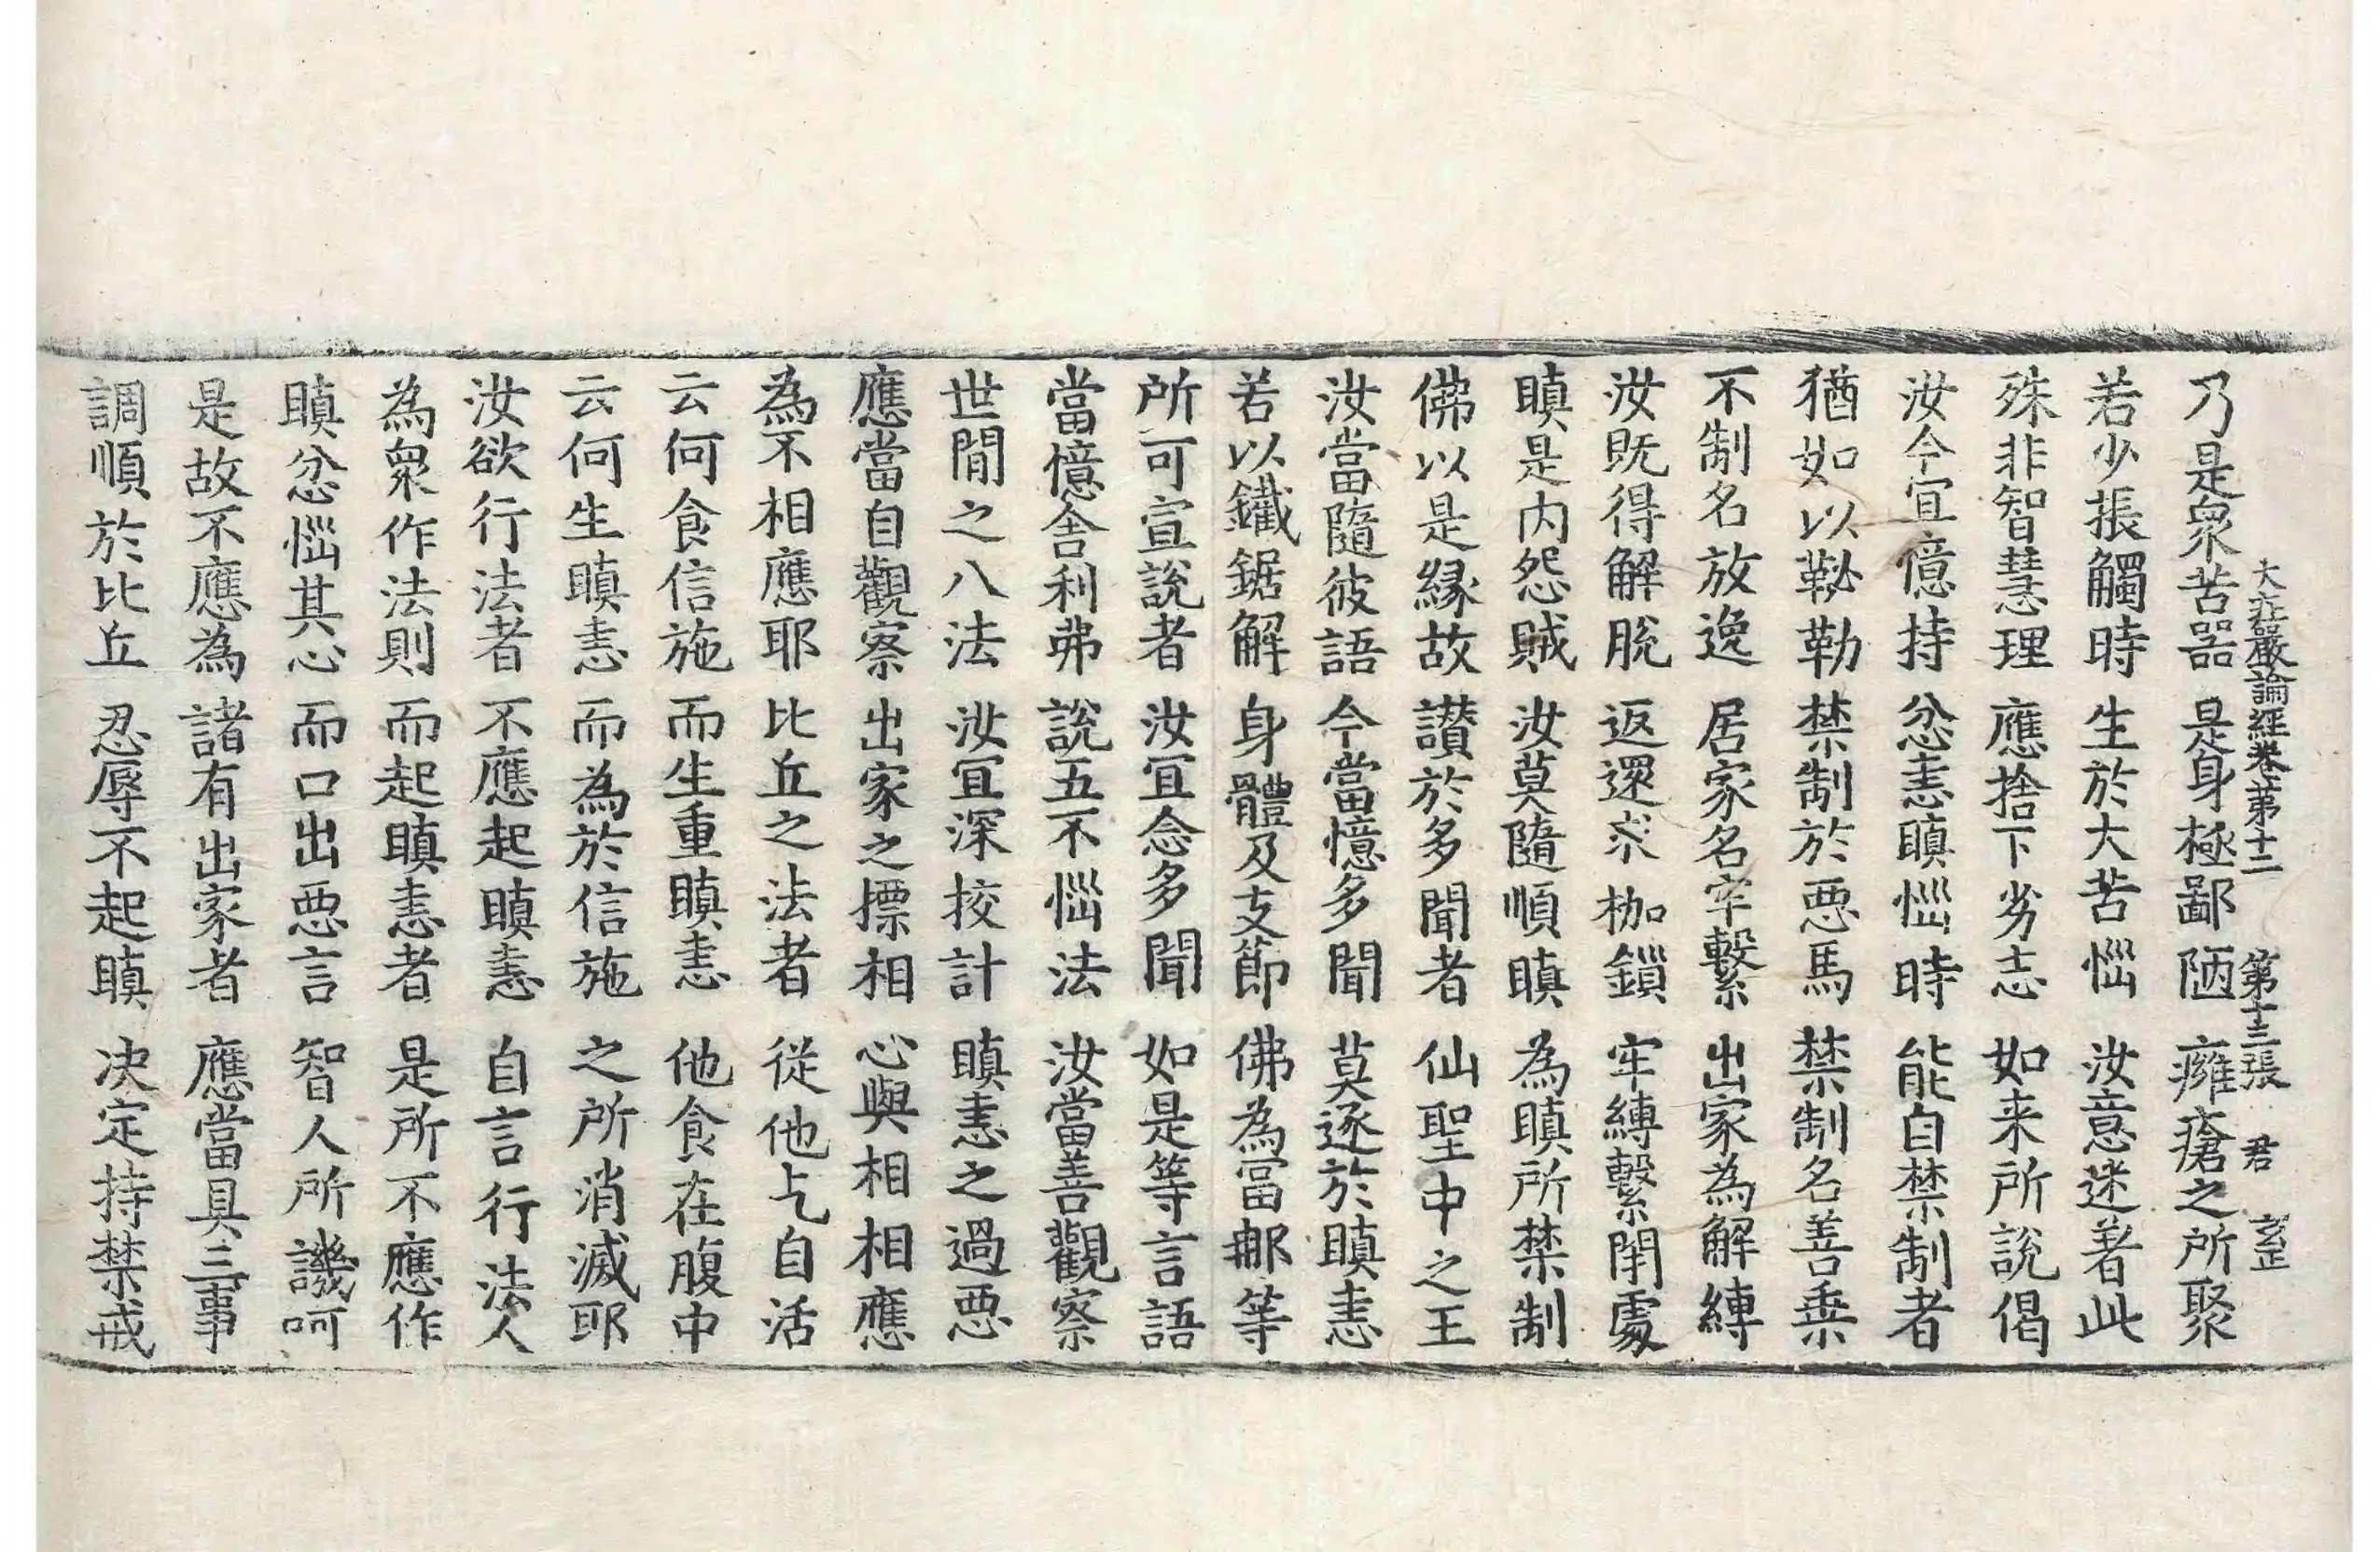 大莊嚴論經卷第十二　第十三張　君　
乃是衆苦器　是身極鄙陋　癰瘡之所聚
若少振觸時　生於大苦惱　汝意迷著此
殊非智慧理　應捨下劣志　如来所說偈
汝今宜憶持　忿恚瞋惱時　能自禁制者
猶如以鞍勒　禁制於惡馬　禁制名善乗
不制名放逸　居家名牢繫　出家為解縛
汝既得解脫　返還求枷鎖　牢縛繫閇處
瞋是内怨賊　汝莫隨順瞋　為瞋所禁制
佛以是縁故　讃於多聞者　仙聖中之王
汝當隨彼語　今當憶多聞　莫逐於瞋恚
若以鐵鋸解　身體及支節　佛為富那等
所可宣說者　汝冝念多聞　如是等言語
當憶舍利弗　說五不惱法　汝當善觀察
世閒之八法　汝冝深挍計　瞋恚之過惡
應當自觀察　出家之摽相　心與相相應
為不相應耶　比丘之法者　從他乞自活
云何食信施　而生重瞋恚　他食在腹中
云何生瞋恚　而為於信施　之所消滅耶
汝欲行法者　不應起瞋恚　自言行法人
為衆作法則　而起瞋恚者　是所不應作
瞋忿惱其心　而口出惡言　智人所譏呵
是故不應為　諸有出家者　應當具三事
調順於比丘　忍辱不起瞋　决定持禁戒